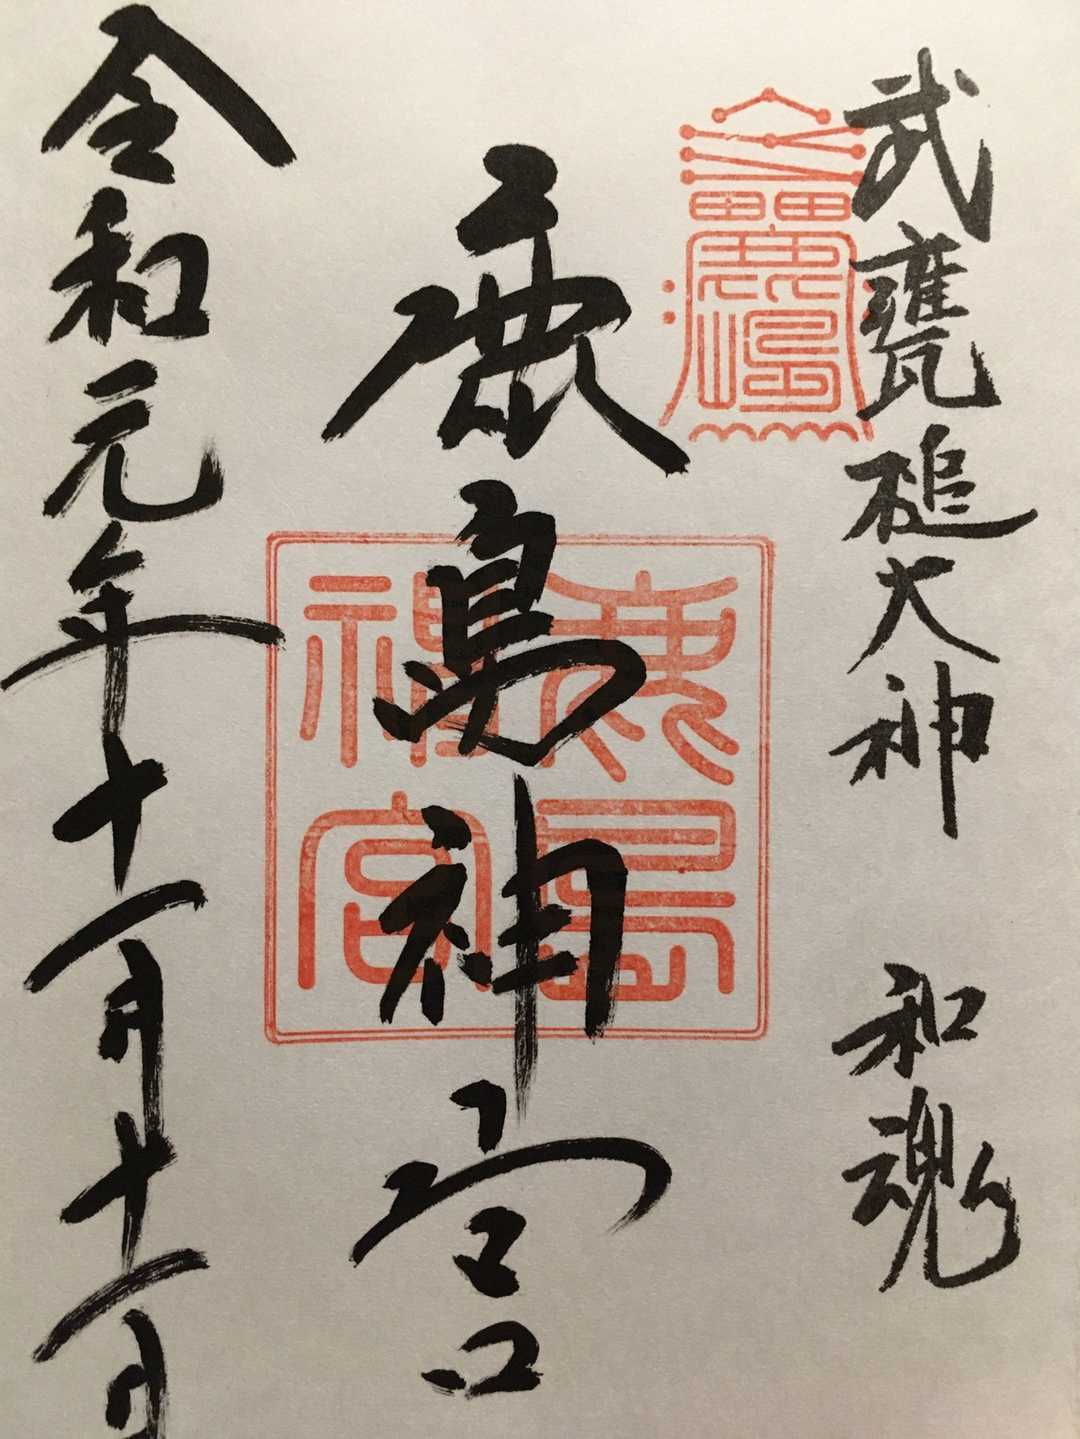 武甕槌大神 和魂
鹿島神宮
鹿島
神宮
令和元年十一月十一日